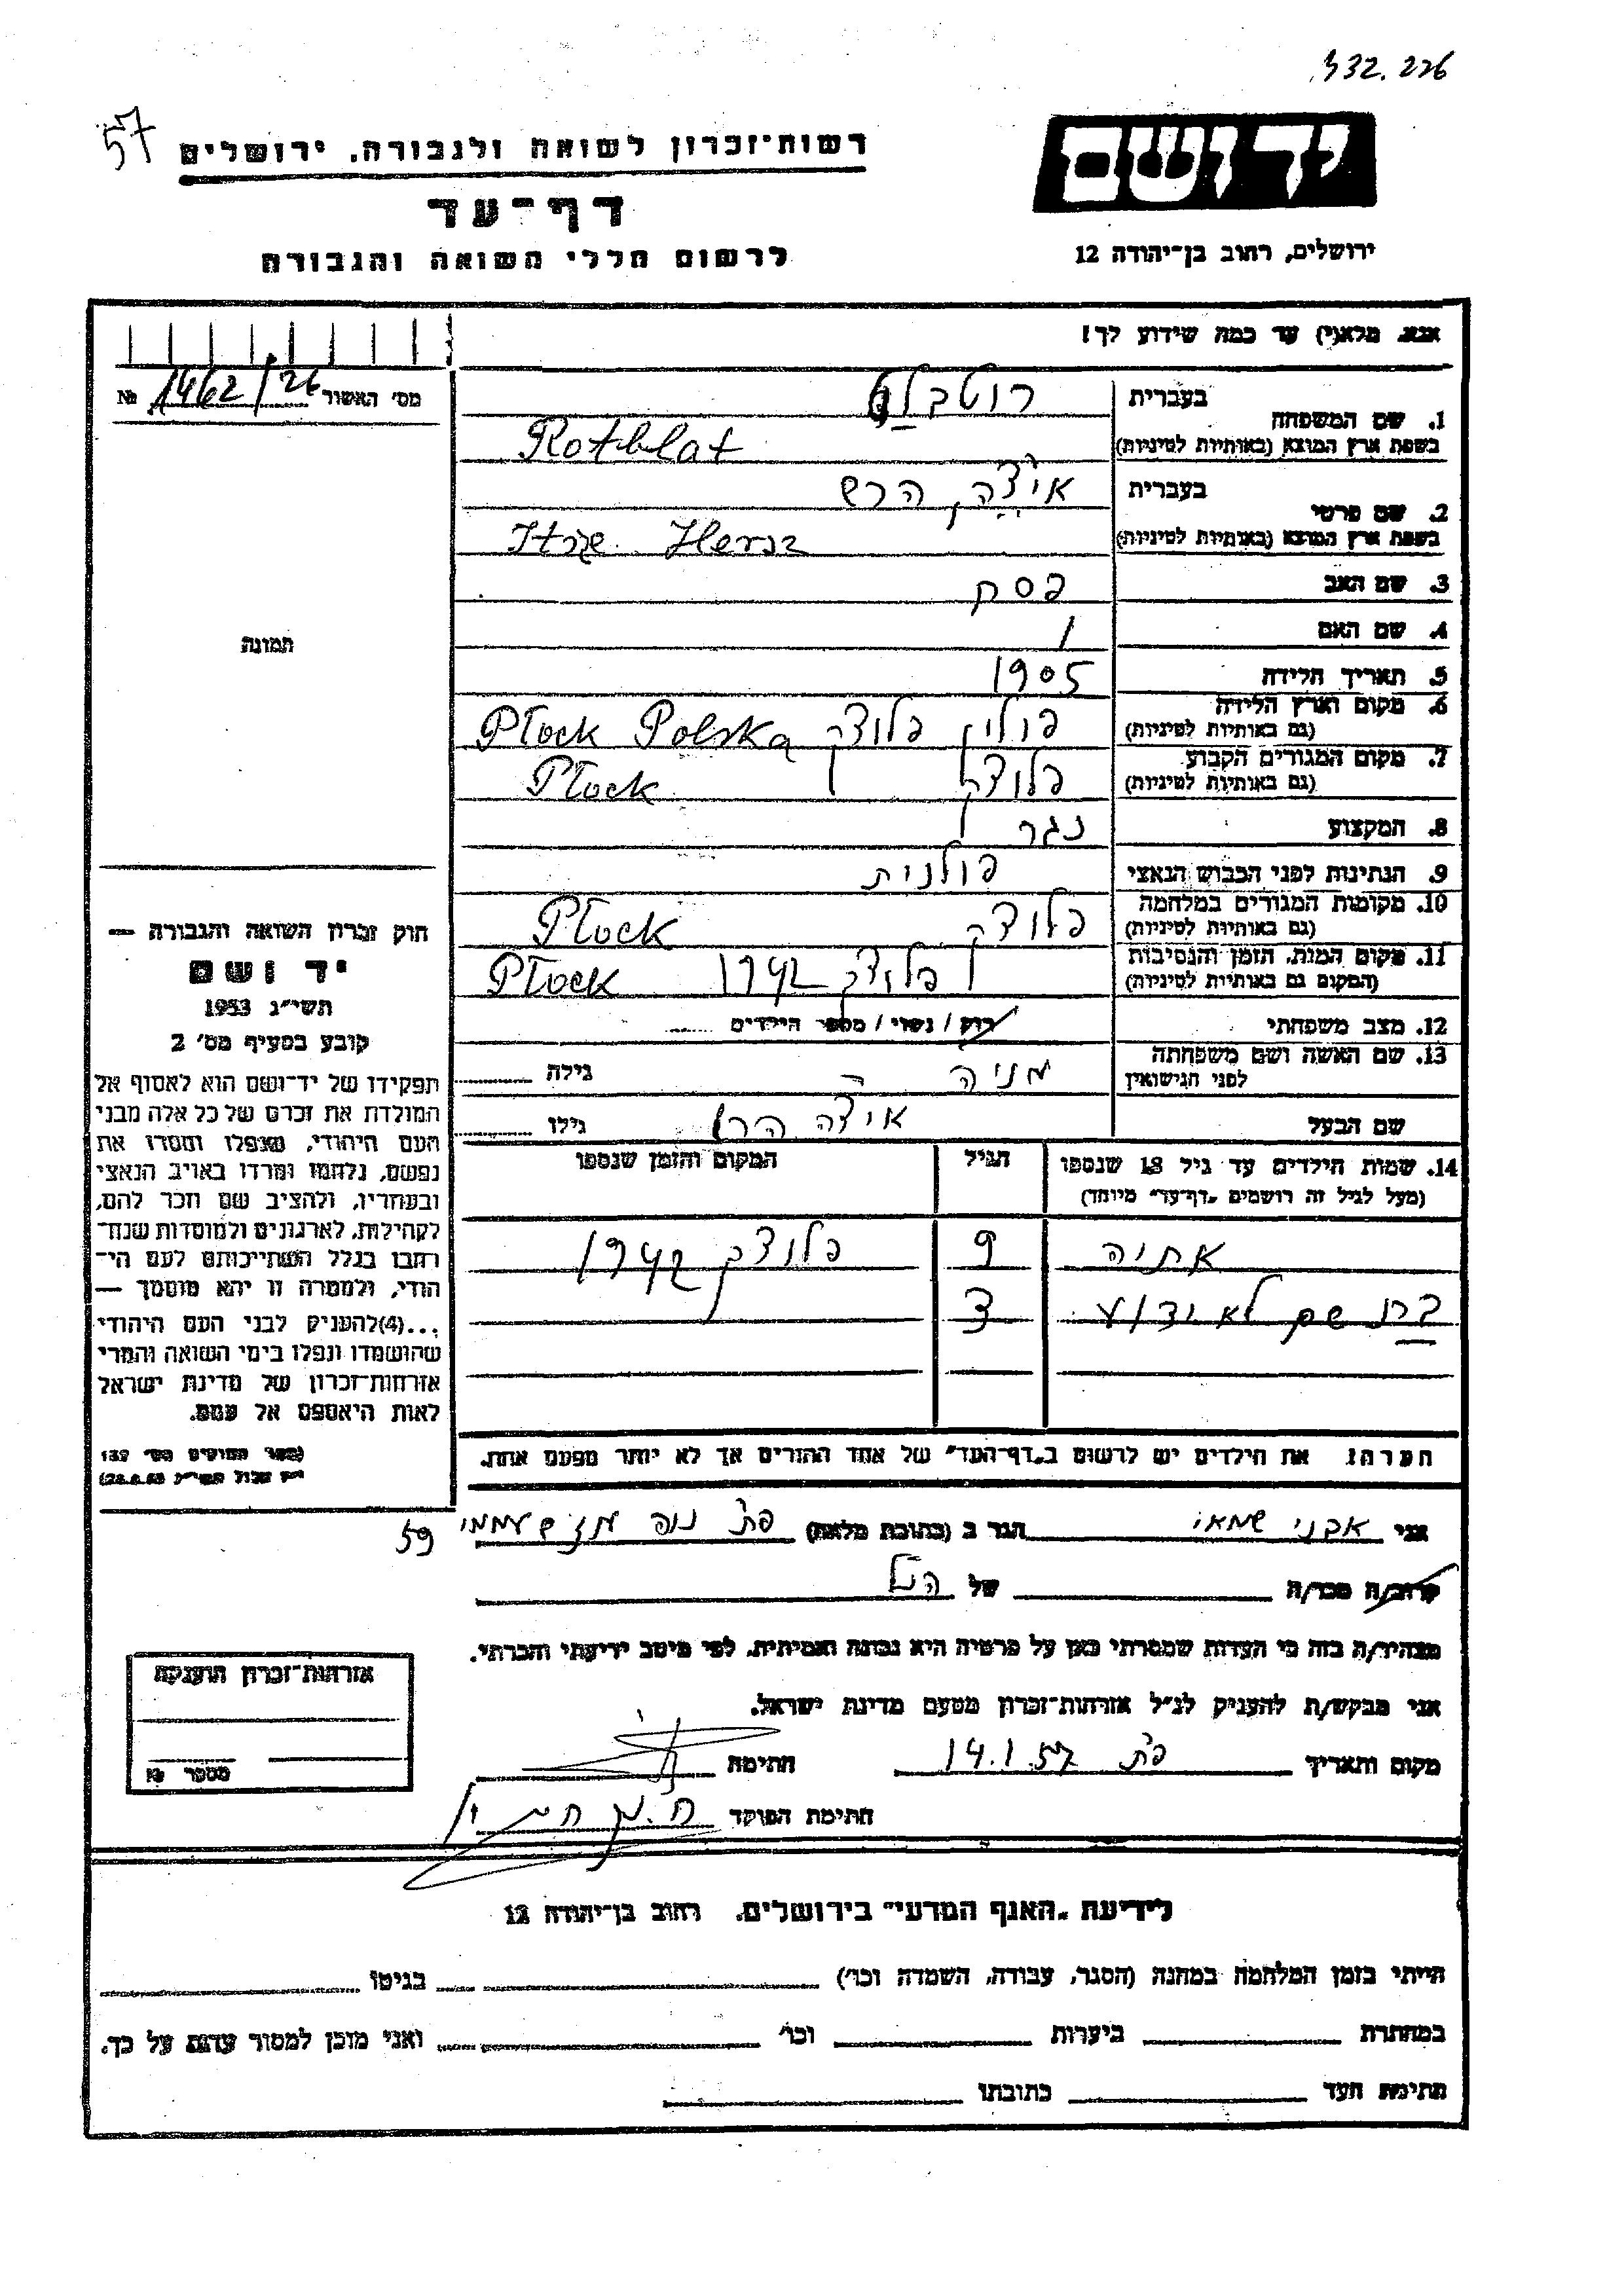 332.226
57
יד ושם
רשות־זכרון לשואה ולגבורה, ירושלים
דף־עד
לרשום חללי השואה והגבורה
ירושלים, רחוב בן־יהודה 12
אנא, מלא(י) עד כמה שידוע לך!
מס׳ האשור 1462/26 №
1. שם המשפחה בעברית רוטבלט
בשפת ארץ המוצא (באותיות לטיניות) Rotblat
2. שם פרטי בעברית איצה הרש
בשפת ארץ המוצא (באותיות לטיניות) Hersz
3. שם האב פסק
4. שם האם /
5. תאריך הלידה 1905
6. מקום וארץ הלידה (גם באותיות לטיניות) פולין פלוצק Płock Polska
7. מקום המגורים הקבוע (גם באותיות לטיניות) פלוצק Płock
8. המקצוע נגר
9. הנתינות לפני הכבוש הנאצי פולנית
10. מקומות המגורים במלחמה (גם באותיות לטיניות) פלוצק Płock
11. מקום המות, הזמן והנסיבות (המקום גם באותיות לטיניות) פלוצק 1942 Płock
12. מצב משפחתי רוק / נשוי / מספר הילדים
13. שם האשה ושם משפחתה לפני הנישואין מניה – גילה
שם הבעל איצה הרש גילו
14. שמות הילדים עד גיל 18 שנספו
(מעל לגיל זה רושמים "דף־עד" מיוחד)
הגיל
המקום והזמן שנספו
9 פלוצק 1942
בת שם לא ידוע 3
הערה: את הילדים יש לרשום ב"דף־העד" של אחד ההורים אך לא יותר מפעם אחת.
תמונה
חוק זכרון השואה והגבורה —
יד ושם
תשי״ג 1953
קובע בסעיף מס׳ 2
תפקידו של יד־ושם הוא לאסוף אל
המולדת את זכרם של כל אלה מבני
העם היהודי, שנפלו ומסרו את
נפשם, נלחמו ומרדו באויב הנאצי
ובעוזריו, ולהציב שם וזכר להם,
לקהילות, לארגונים ולמוסדות שנח־
רבו בגלל השתייכותם לעם הי־
הודי, ולמטרה זו יהא מוסמך —
...(4) להעניק לבני העם היהודי
שהושמדו ונפלו בימי השואה והמרי
אזרחות־זכרון של מדינת ישראל
לאות היאספם אל עמם.
(ספר החוקים מס׳ 132
י״ז אלול תשי״ג 28.8.53)
אני אבני שמאי הגר ב (כתובת מלאה) פת נוה 59
קרוב/ה מכר/ה של הנ״ל
מצהיר/ה בזה כי העדות שמסרתי כאן על פרטיה היא נכונה ואמיתית, לפי מיטב ידיעתי והכרתי.
אני מבקש/ת להעניק לנ״ל אזרחות־זכרון מטעם מדינת ישראל.
מקום ותאריך פת 14.1.57 חתימה
חתימת הפוקד
אזרחות־זכרון הוענקה
מספר №
לידיעת "האגף המדעי" בירושלים, רחוב בן־יהודה 12
הייתי בזמן המלחמה במחנה (הסגר, עבודה, השמדה וכו׳) בגיטו
במחתרת ביערות וכו׳ ואני מוכן למסור עדות על כך.
חתימת העד כתובתו